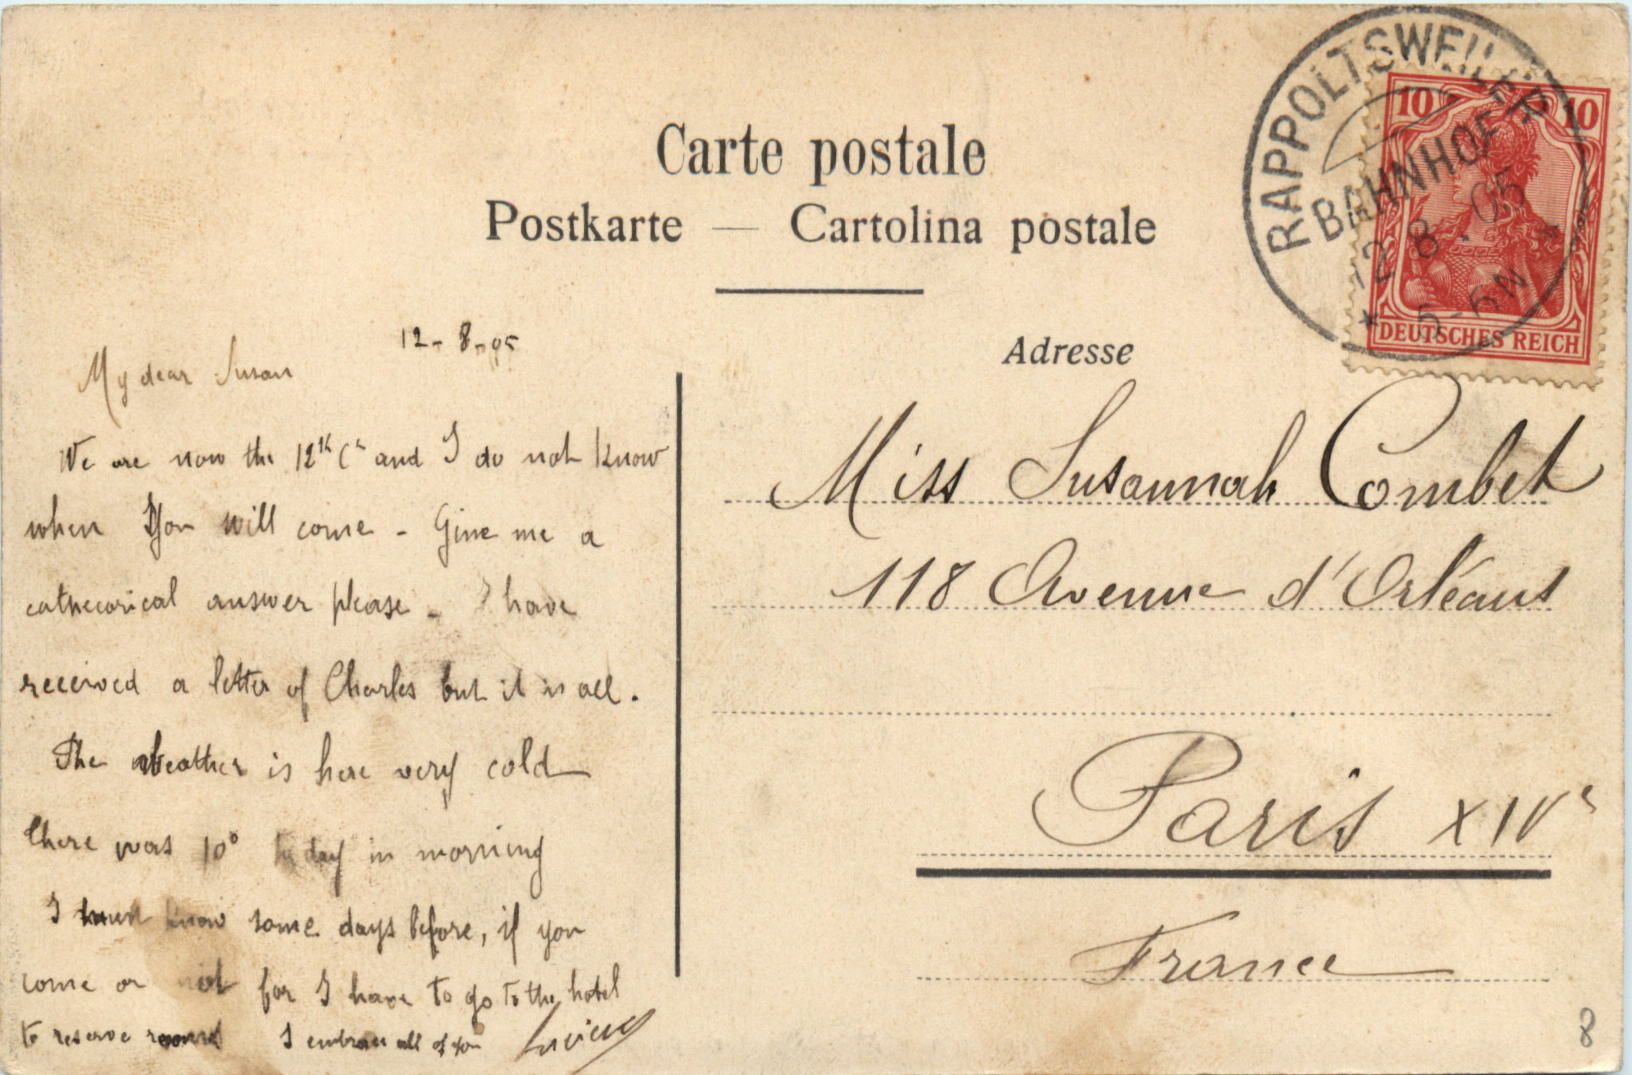 Carte postale
Postkarte — Cartolina postale
RAPPOLTSWEILER
BAHNHOF
12 8. 05
* 5-6N *
10 10
DEUTSCHES REICH
12-8-05
My dear Susan
We are now the 12th Ct and I do not know
when You will come - Give me a
cathecorical answer please - I have
received a letter of Charles but it is all.
The weather is here very cold
there was 10° to day in morning
I must know some days before, if you
come or not for I have to go to the hotel
to reserve I embrace all of you Lucien
Adresse
Miss Susannah Combet
118 Avenue d'Orléans
Paris XIVe
France
8